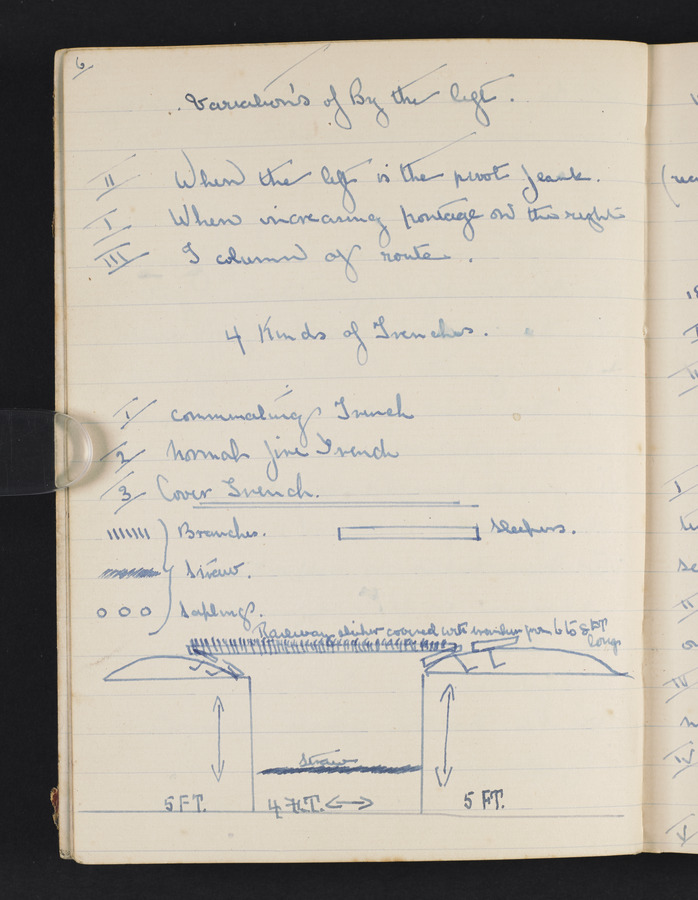 6
Variation's of By the left.
II When the left is the pivot flank.
I When increasing frontage on the right
III I column of route.
4 Kinds of Trenches.
1 commuting Trench
2 Normal fire Trench
3 Cover Trench.
Branches. Sleepers.
Straw.
Saplings.
Railway covered with from 6 to 8 FT
long
Straw
5 FT. 4 FT. 5 FT.